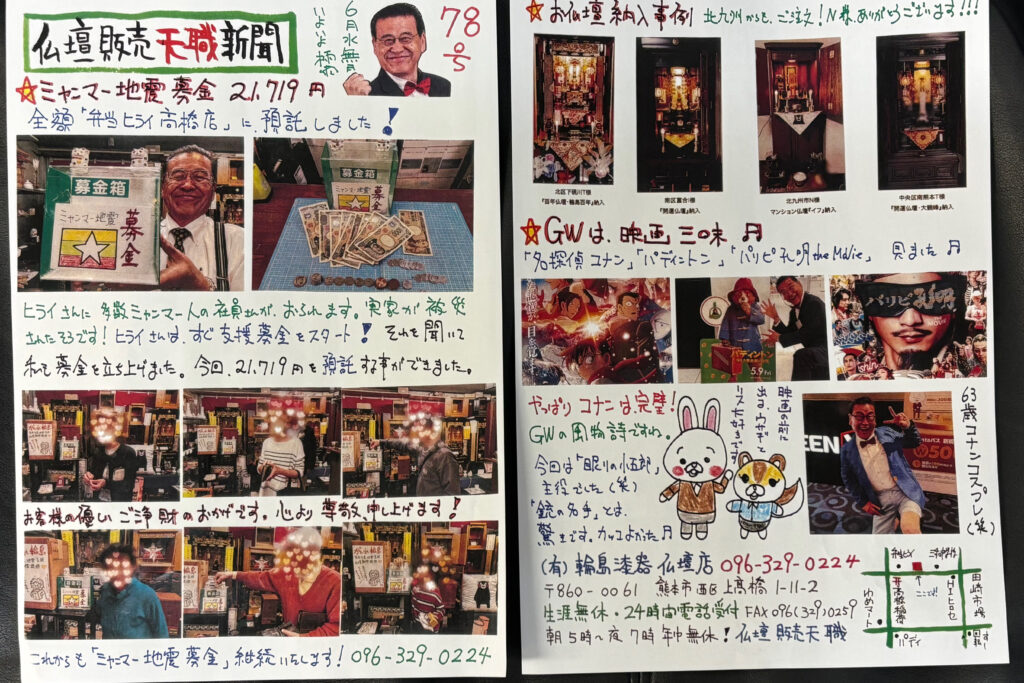 仏壇販売天職新聞
6月水無月
いよいよ梅雨
78号
☆ミャンマー地震募金 21,719円
全額「弁当ヒライ高橋店」に、預託しました!
募金箱
ミャンマー地震
募金
募金箱
ヒライさんに多数ミャンマー人の社員さんが、おられます。実家が被災
されたそうです!ヒライさんは、すぐ支援募金をスタート!それを聞いて
私も募金を立ち上げました。今回、21,719円を預託する事ができました。
お客様の優しいご浄財のおかげです。心より尊敬申し上げます!
これからも「ミャンマー地震募金」継続いたします!096-329-0224
☆お仏壇納入事例 北九州からも、ご注文!N様、ありがとうございます!!!
北区下硯川T様
『百年仏壇・輪島百年』納入
南区富合I様
『開運仏壇』納入
北九州市N様
マンション仏壇『イフ』納入
中央区南熊本T様
『開運仏壇・大親峰』納入
☆GWは、映画三昧♬
「名探偵コナン」「パディントン」「パリピ孔明the Movie」見ました♬
パディントン
5.9
パリピ孔明
やっぱりコナンは完璧!
GWの風物詩ですね。
今回は「眠りの小五郎」
主役でした(笑)
「銃の名手」とは、
驚きです。カッコよかった♬
映画の前に
出る、ウサギと
リス大好きです
63歳コナンコスプレ(笑)
(有)輪島漆器仏壇店 096-329-0224
〒860-0061 熊本市西区上高橋1-11-2
生涯無休・24時間電話受付 FAX096(329)0259
朝5時〜夜7時年中無休!仏壇販売天職
ここです
高橋稲荷
ゆめマート
田崎市場